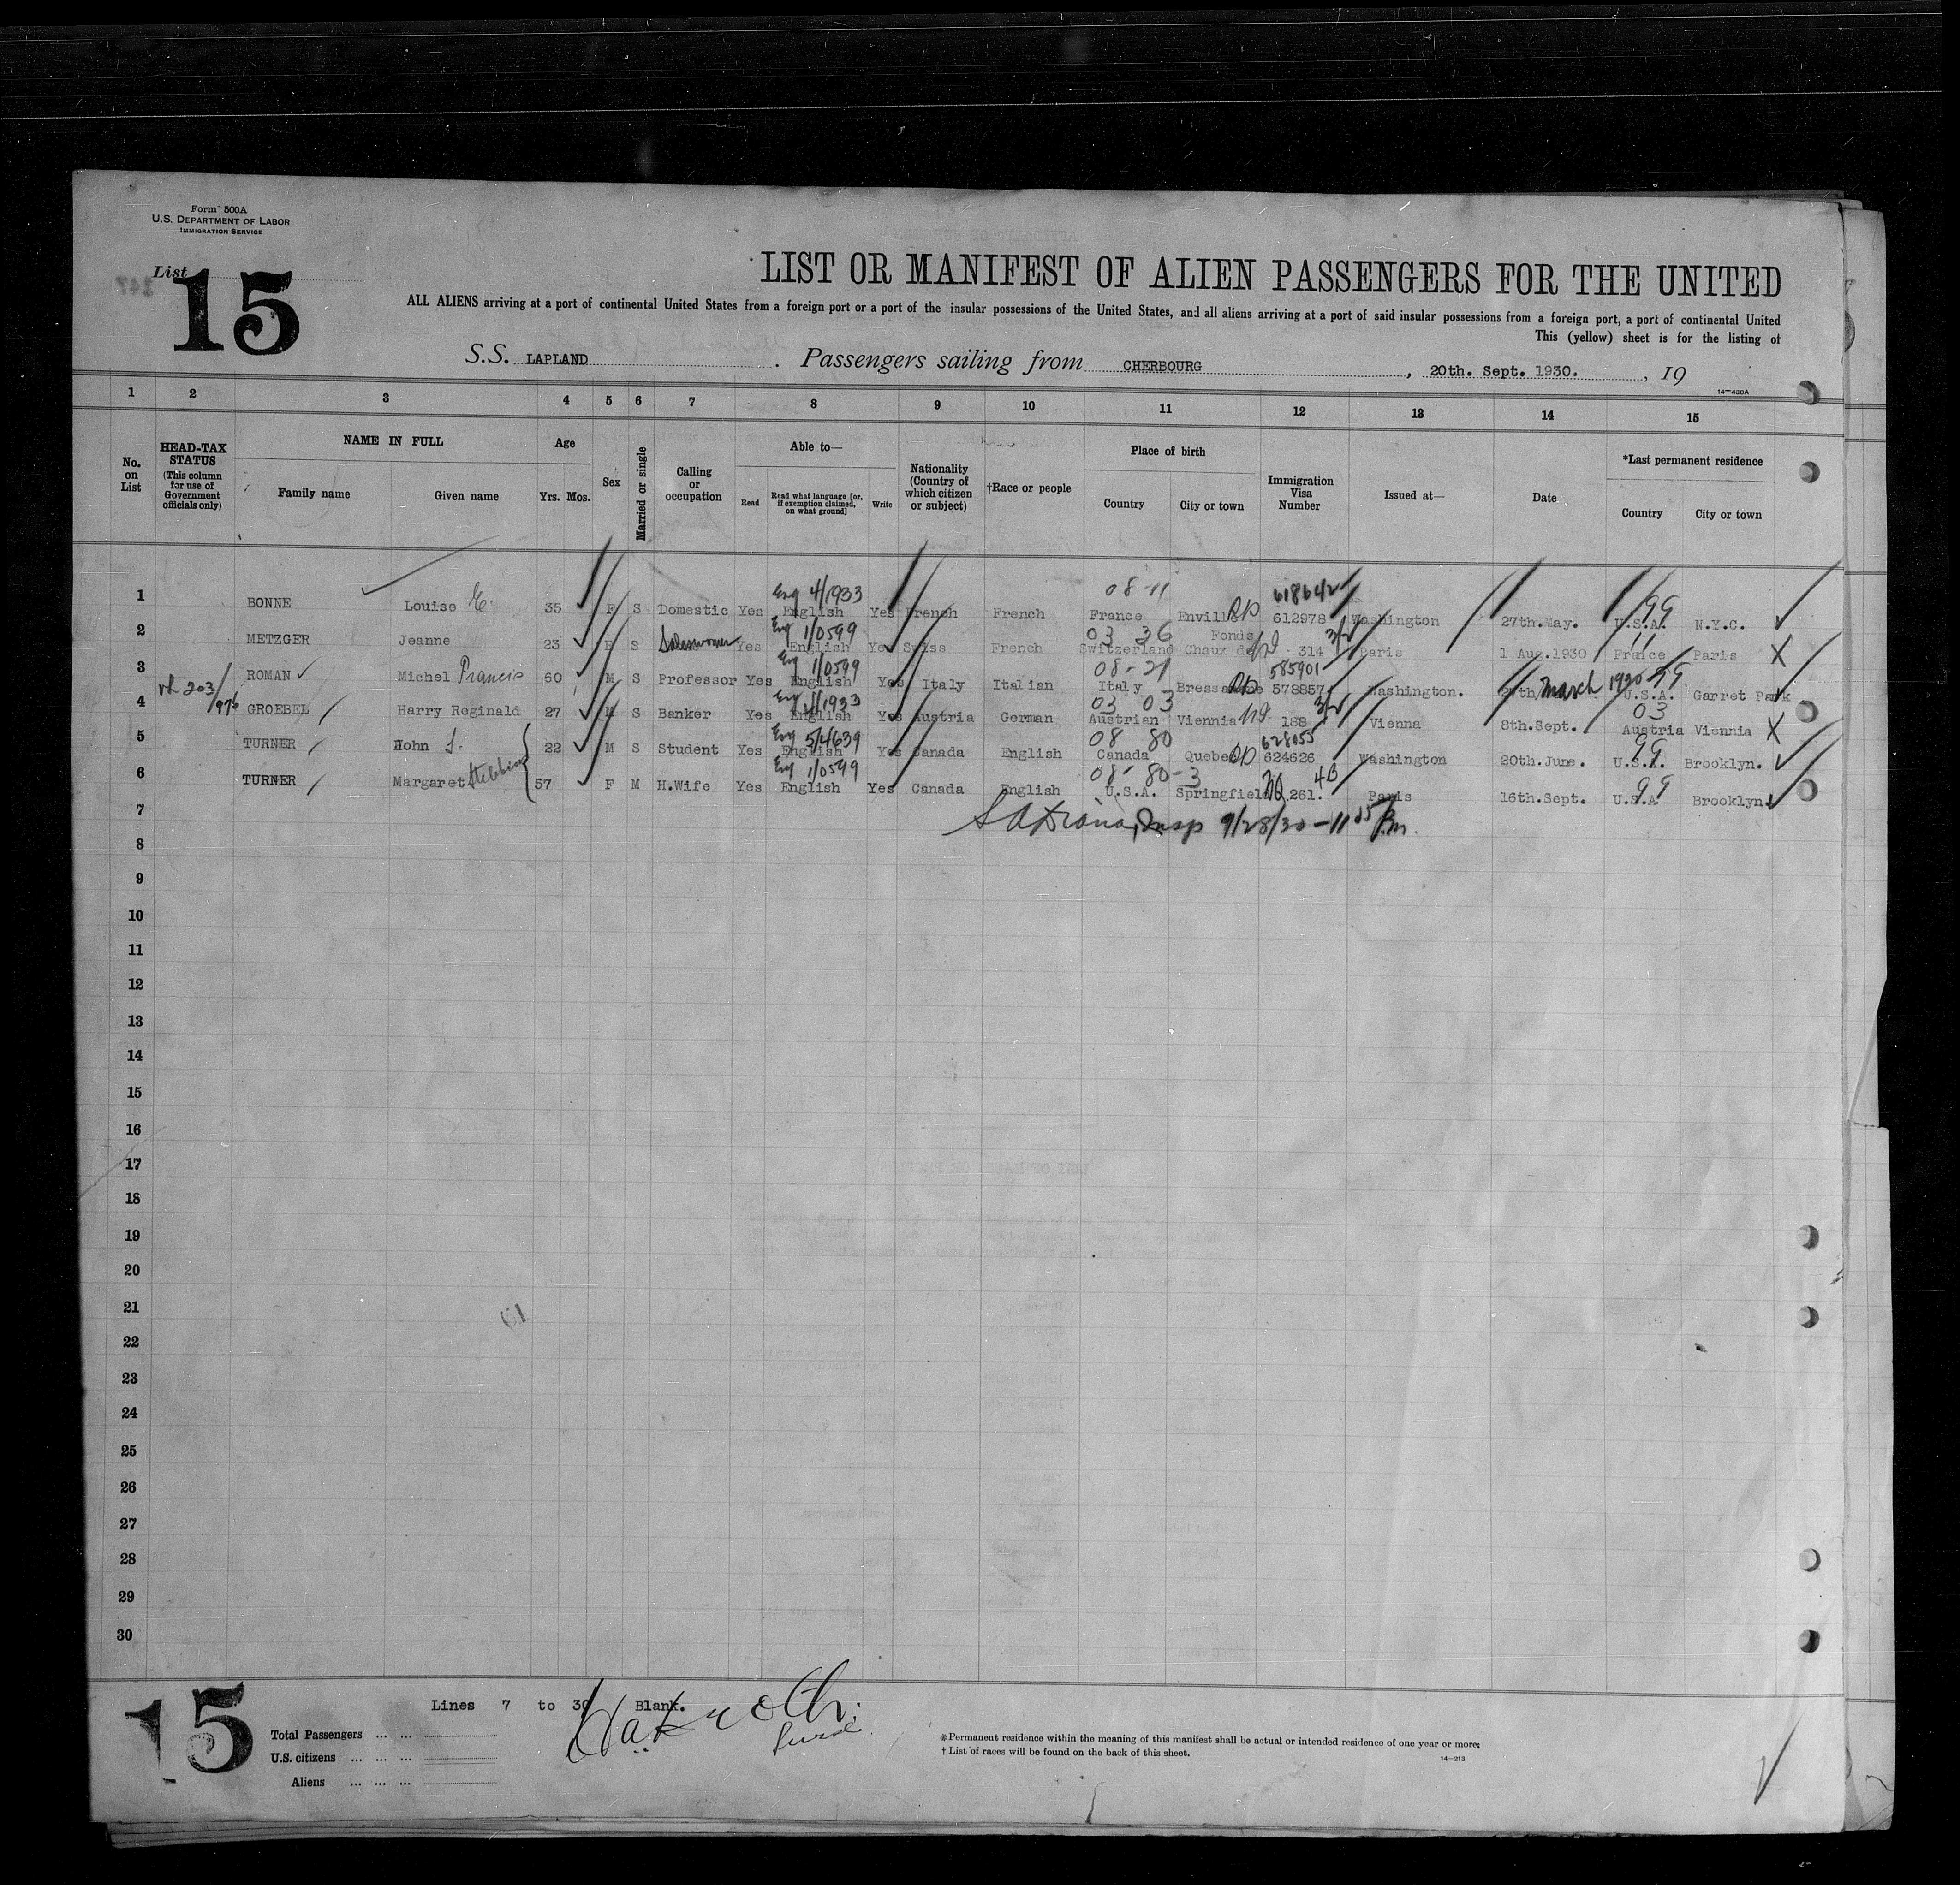 Form 500A
U.S. DEPARTMENT OF LABOR
IMMIGRATION SERVICE
List
15
LIST OR MANIFEST OF ALIEN PASSENGERS FOR THE UNITED
ALL ALIENS arriving at a port of continental United States from a foreign port or a port of the insular possessions of the United States, and all aliens arriving at a port of said insular possessions from a foreign port, a port of continental United
This (yellow) sheet is for the listing of
S.S. LAPLAND . Passengers sailing from CHERBOURG , 20th. Sept. 1930. , 19
14—430A
1 2 3 4 5 6 7 8 9 10 11 12 13 14 15
No. on List
HEAD-TAX STATUS (This column for use of Government officials only)
NAME IN FULL
Family name Given name
Age
Yrs. Mos.
Sex
Married or single
Calling or occupation
Able to—
Read
Read what language [or, if exemption claimed, on what ground]
Write
Nationality (Country of which citizen or subject)
†Race or people
Place of birth
Country City or town
Immigration Visa Number
Issued at—
Date
*Last permanent residence
Country City or town
Eng 4/1933 08-11 618642 99
1 BONNE Louise E. 35 F S Domestic Yes English Yes French French France 612978 Washington 27th.May. U.S.A. N.Y.C.
Eng 1/0599 03 36 Fonds
2 METZGER Jeanne 23 F S Saleswoman Yes English Yes Swiss French Switzerland Chaux de 314 Paris 1 Aug.1930 France Paris X
Eng 1/0599 08-21 585901 March 1930 99
3 ROMAN Michel Francis 60 M S Professor Yes English Yes Italy Italian Italy 578857 Washington. U.S.A. Garret Park
203/976 Eng 1/1933 03 03 03
4 GROEBEL Harry Reginald 27 M S Banker Yes English Yes Austria German Austrian Viennia 188 Vienna 8th.Sept. Austria Viennia X
Eng 5/4639 08 80 628055 99
5 TURNER John S. 22 M S Student Yes English Yes Canada English Canada Quebec 624626 Washington 20th.June. U.S.A. Brooklyn.
Eng 1/0599 08-80-3 4B 99
6 TURNER Margaret Stebbins 57 F M H.Wife Yes English Yes Canada English U.S.A. Springfield 261. Paris 16th.Sept. U.S.A Brooklyn.
7 Insp 9/28/30 - 11 05 Pm.
8
9
10
11
12
13
14
15
16
17
18
19
20
21
22
23
24
25
26
27
28
29
30
15
Lines 7 to 30 Blank.
Total Passengers ... ...
U.S. citizens ... ... ...
Aliens ... ... ...
*Permanent residence within the meaning of this manifest shall be actual or intended residence of one year or more.
† List of races will be found on the back of this sheet.
14—213